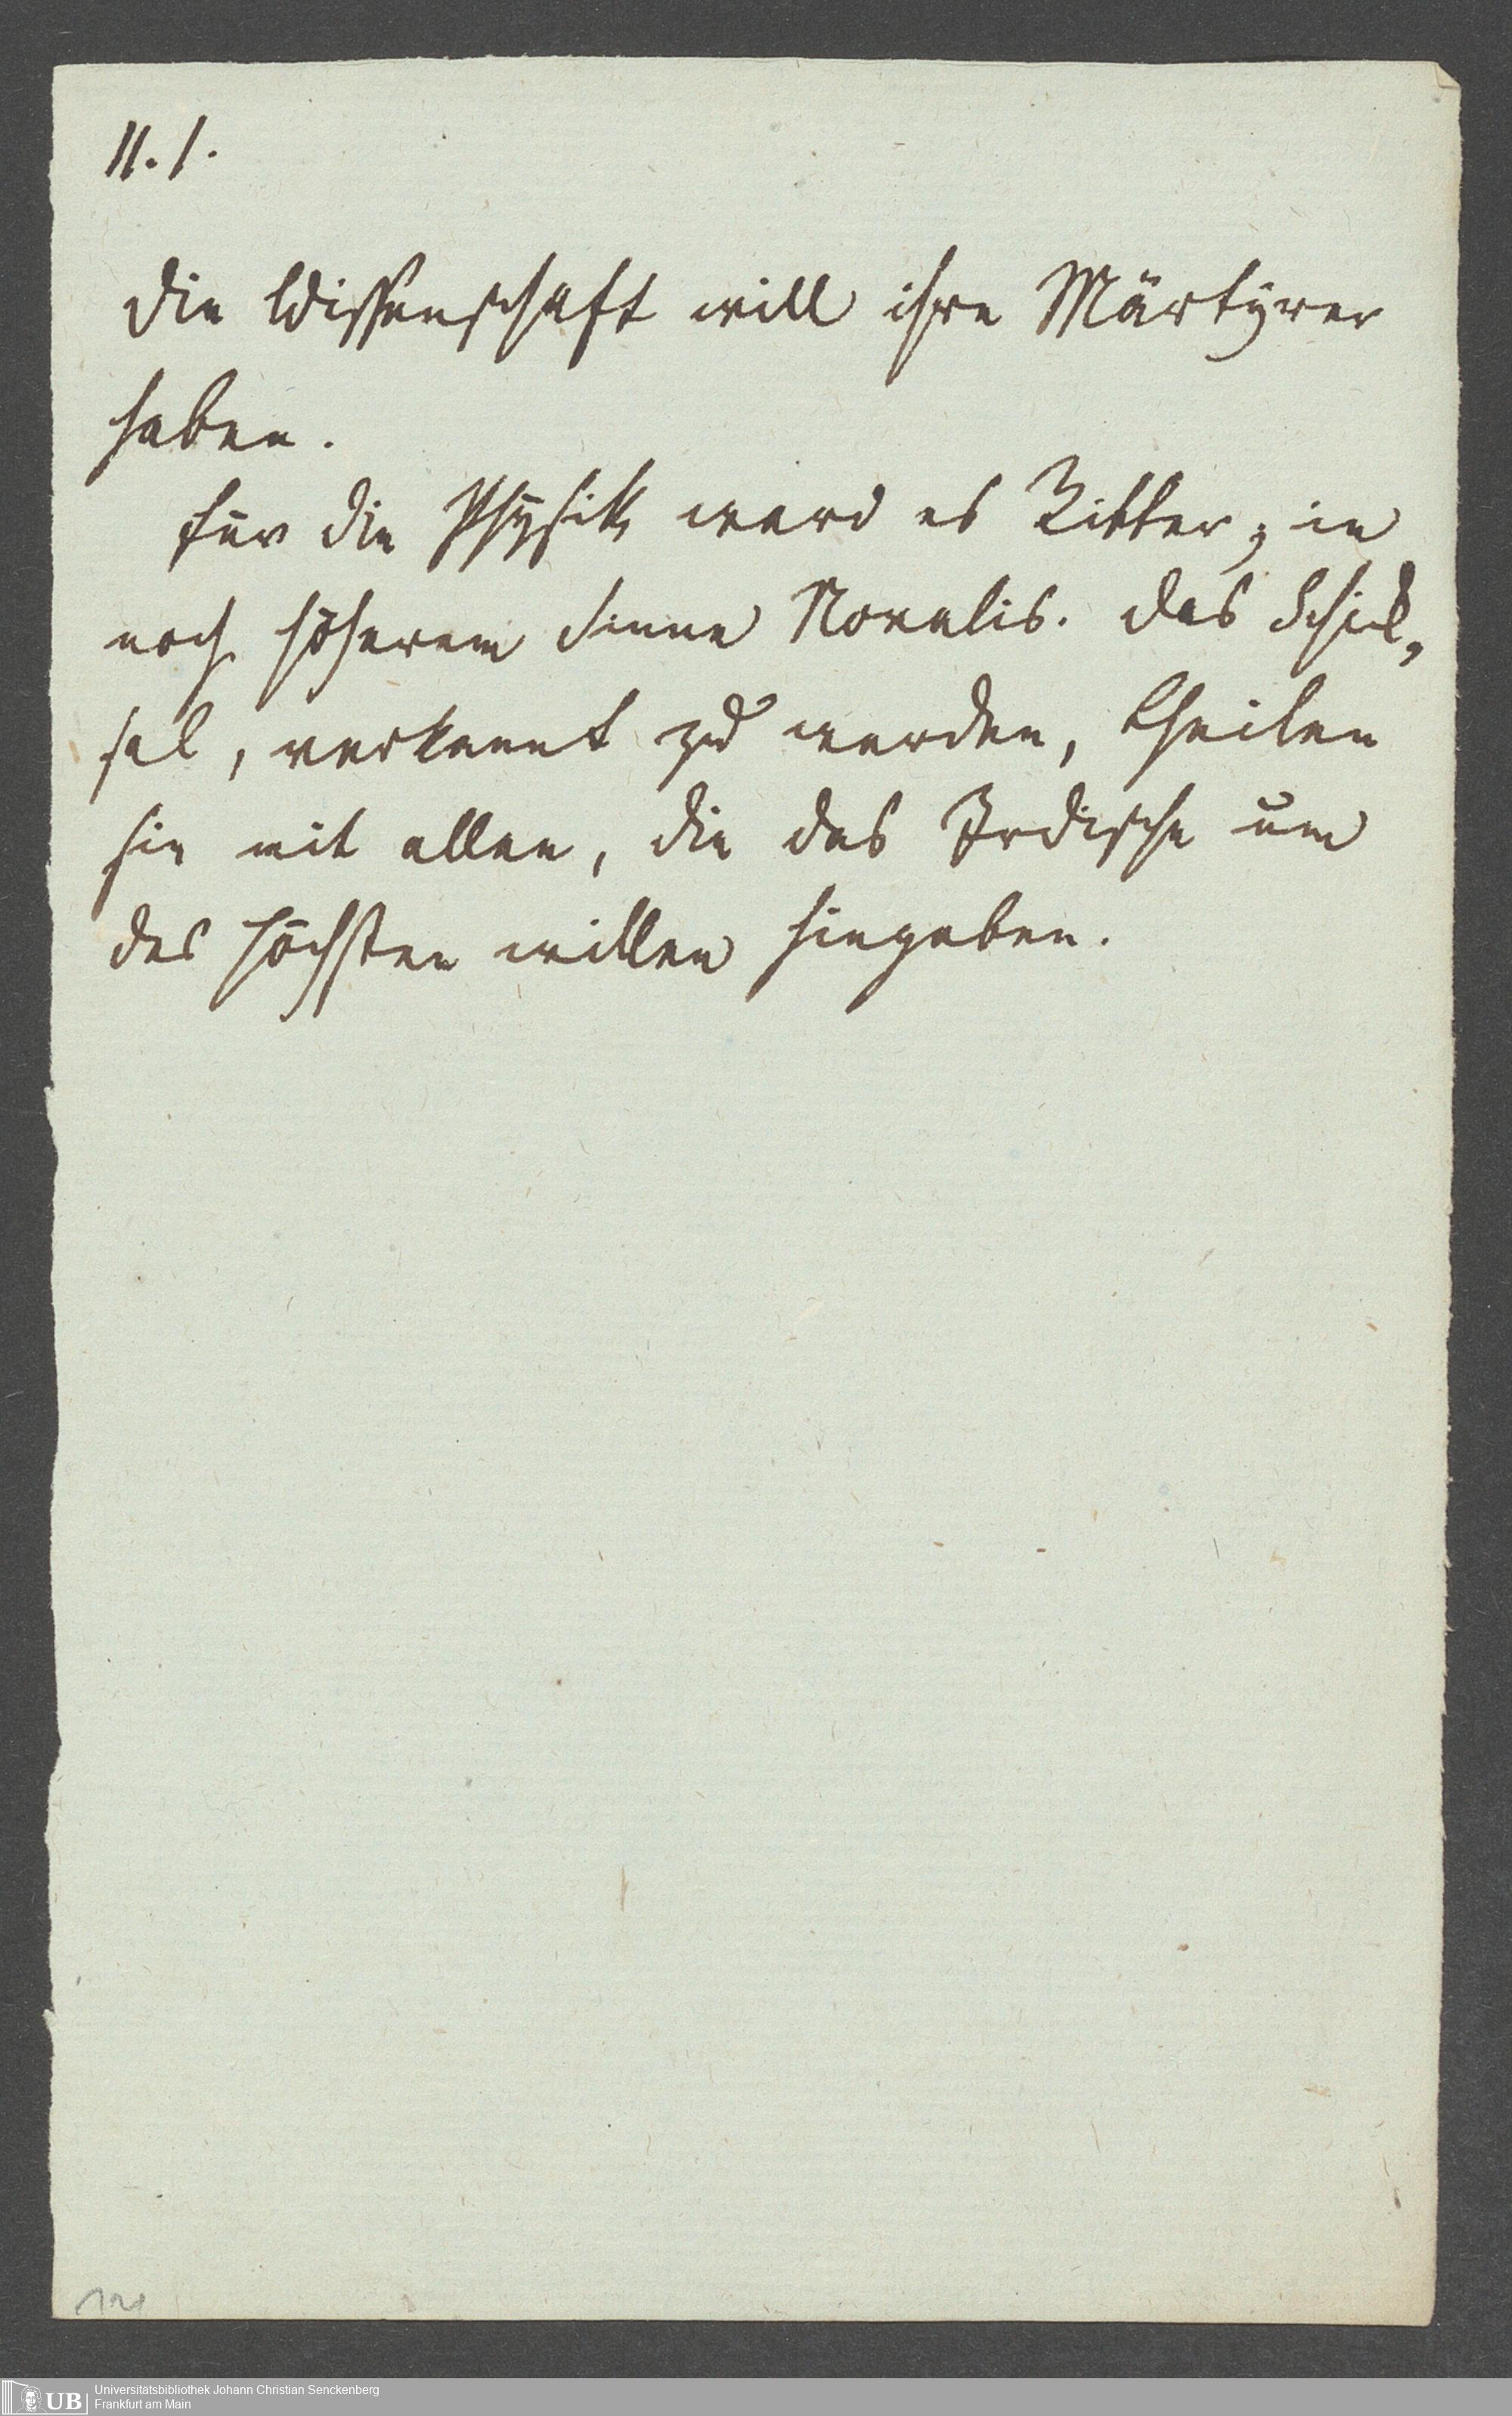 II. 1.
Die Wissenschaft will ihre Märtyrer
haben.
Für die Physik ward es Ritter, in
noch höherem Sinne Novalis. Das Schick-
sal, verkannt zu werden, theilen
sie mit allen, die das Irdische um
des Höchsten willen hingaben.
121
UB
Universitätsbibliothek Johann Christian Senckenberg
Frankfurt am Main